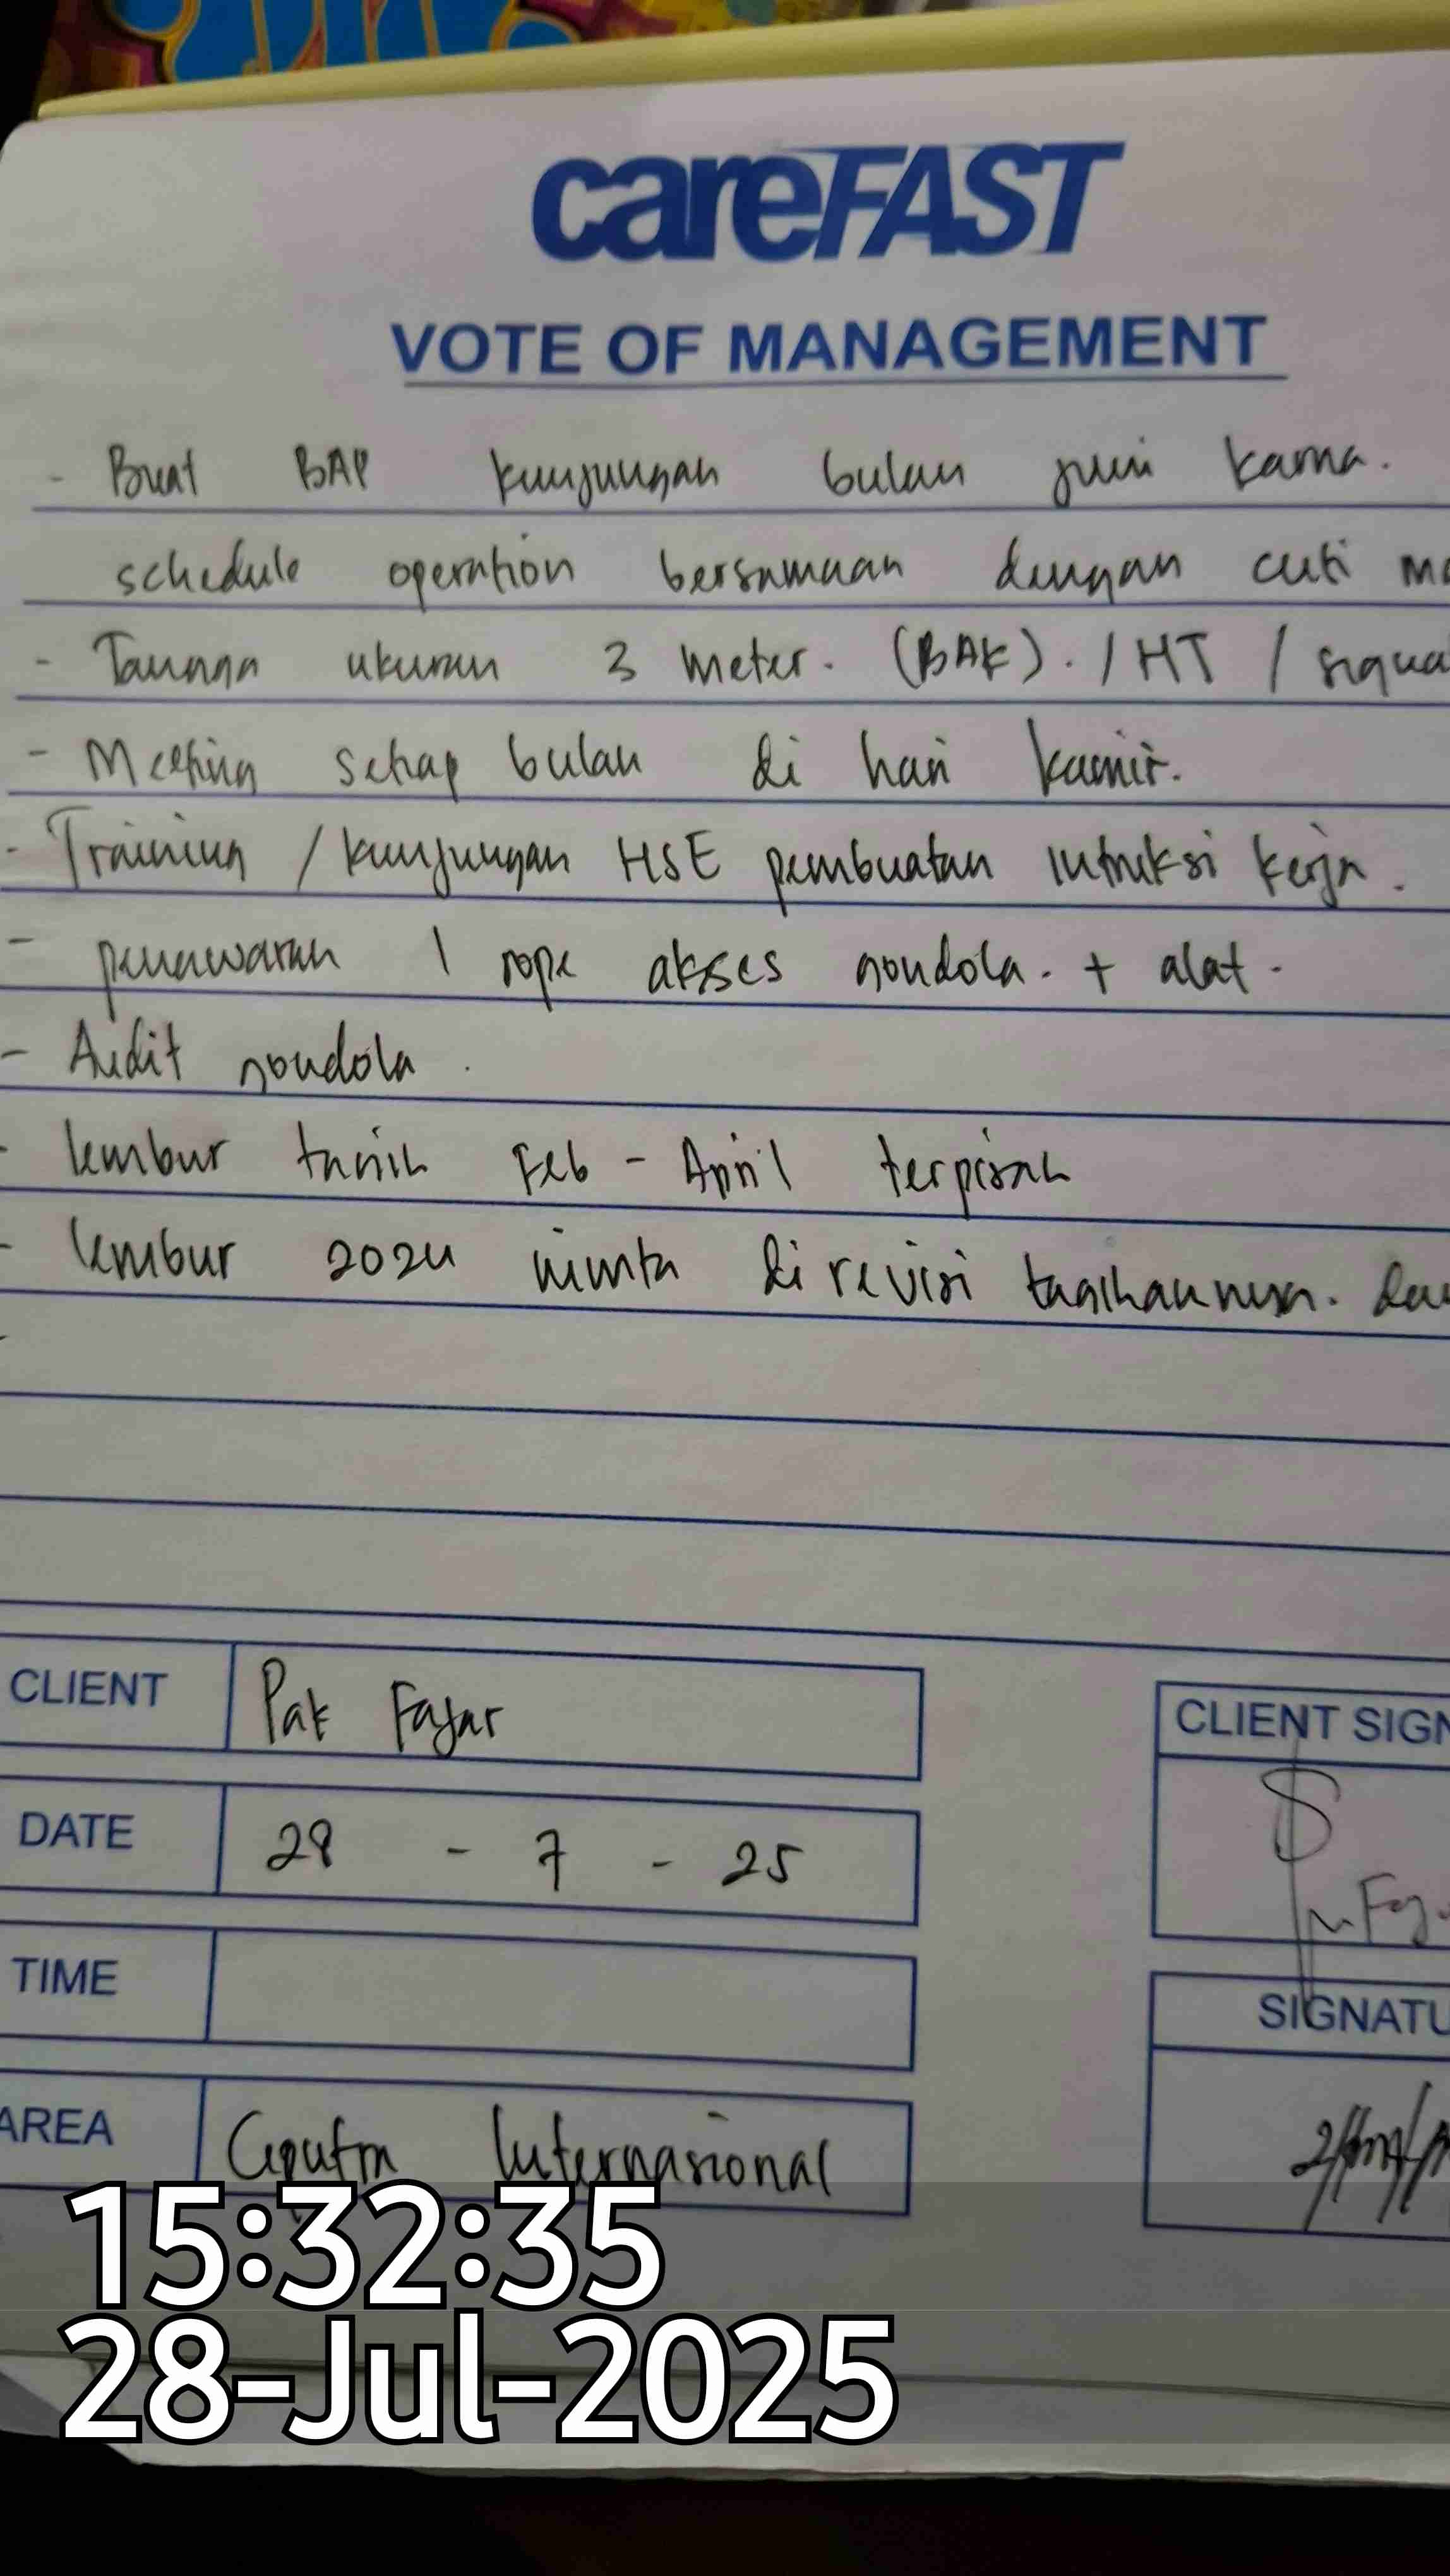 careFAST
VOTE OF MANAGEMENT
- Buat BAP kunjungan bulan juni karna.
schedule operation bersamaan dengan cuti
- Tangga ukuran 3 meter. (BAK). / HT /
- Meeting setiap bulan di hari kamis.
- Training / kunjungan HSE pembuatan intruksi kerja.
- penawaran 1 rope akses gondola. + alat.
- Audit gondola.
- lembur Feb - April terpisah
- lembur 2024 minta di revisi tagihannya.
CLIENT Pak Fajar
CLIENT SIGN
DATE 28 - 7 - 25
TIME
SIGNATU
AREA Ciputra Internasional
15:32:35
28-Jul-2025